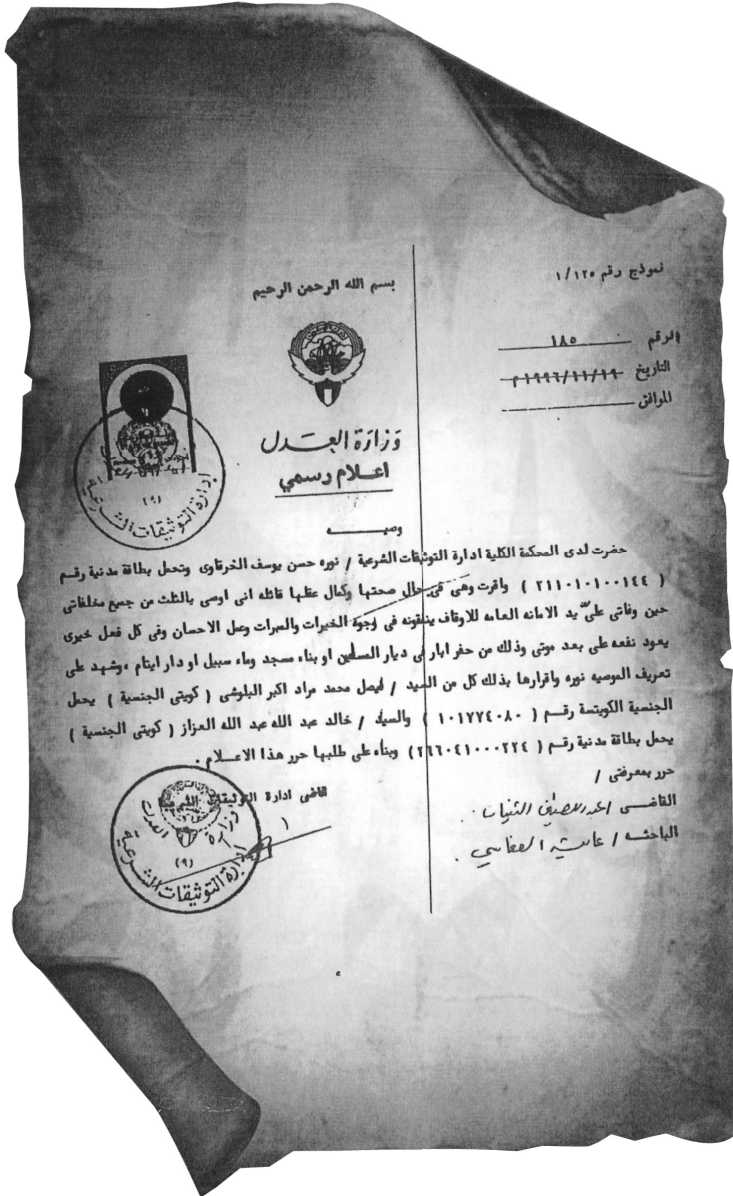 نموذج رقم ١/١٢٥
بسم الله الرحمن الرحيم
الرقم ١٨٥
التاريخ ١٩٩٦/١١/١٩م
الموافق
وزارة العدل
اعلام رسمي
وصيــــه
حضرت لدى المحكمة الكلية ادارة التوثيقات الشرعية / نوره حسن يوسف الخرقاوى وتحمل بطاقة مدنية رقم
( ٢١١٠١٠١٠٠١٤٤ ) واقرت وهى فى حال صحتها وكمال عقلها قائله انى اوصى بالثلث من جميع مخلفاتى
حين وفاتى على يد الامانه العامه للاوقاف ينفقونه فى وجوة الخيرات والمبرات وعمل الاحسان وفى كل فعل خيرى
يعود نفعه على بعد موتى وذلك من حفر ابار فى ديار المسلمين او بناء مسجد وماء سبيل او دار ايتام ،وشهد على
تعريف الموصيه نوره واقرارها بذلك كل من السيد / فيصل محمد مراد اكبر البلوشى ( كويتى الجنسية ) يحمل
الجنسية الكويتسة رقم ( ١٠١٧٧٤٠٨٠ ) والسيد / خالد عبد الله عبد الله العزاز ( كويتى الجنسية )
يحمل بطاقة مدنية رقم ( ٢٦٦٠٤١٠٠٠٢٢٤) وبناء على طلبها حرر هذا الاعلام .
حرر بمعرفتى /
قاضى ادارة التوثيقات الشرعية
القاضى
الباحثه /
ادارة التوثيقات الشرعية
(٩)
وزارة العدل
(٩)
ادارة التوثيقات الشرعية